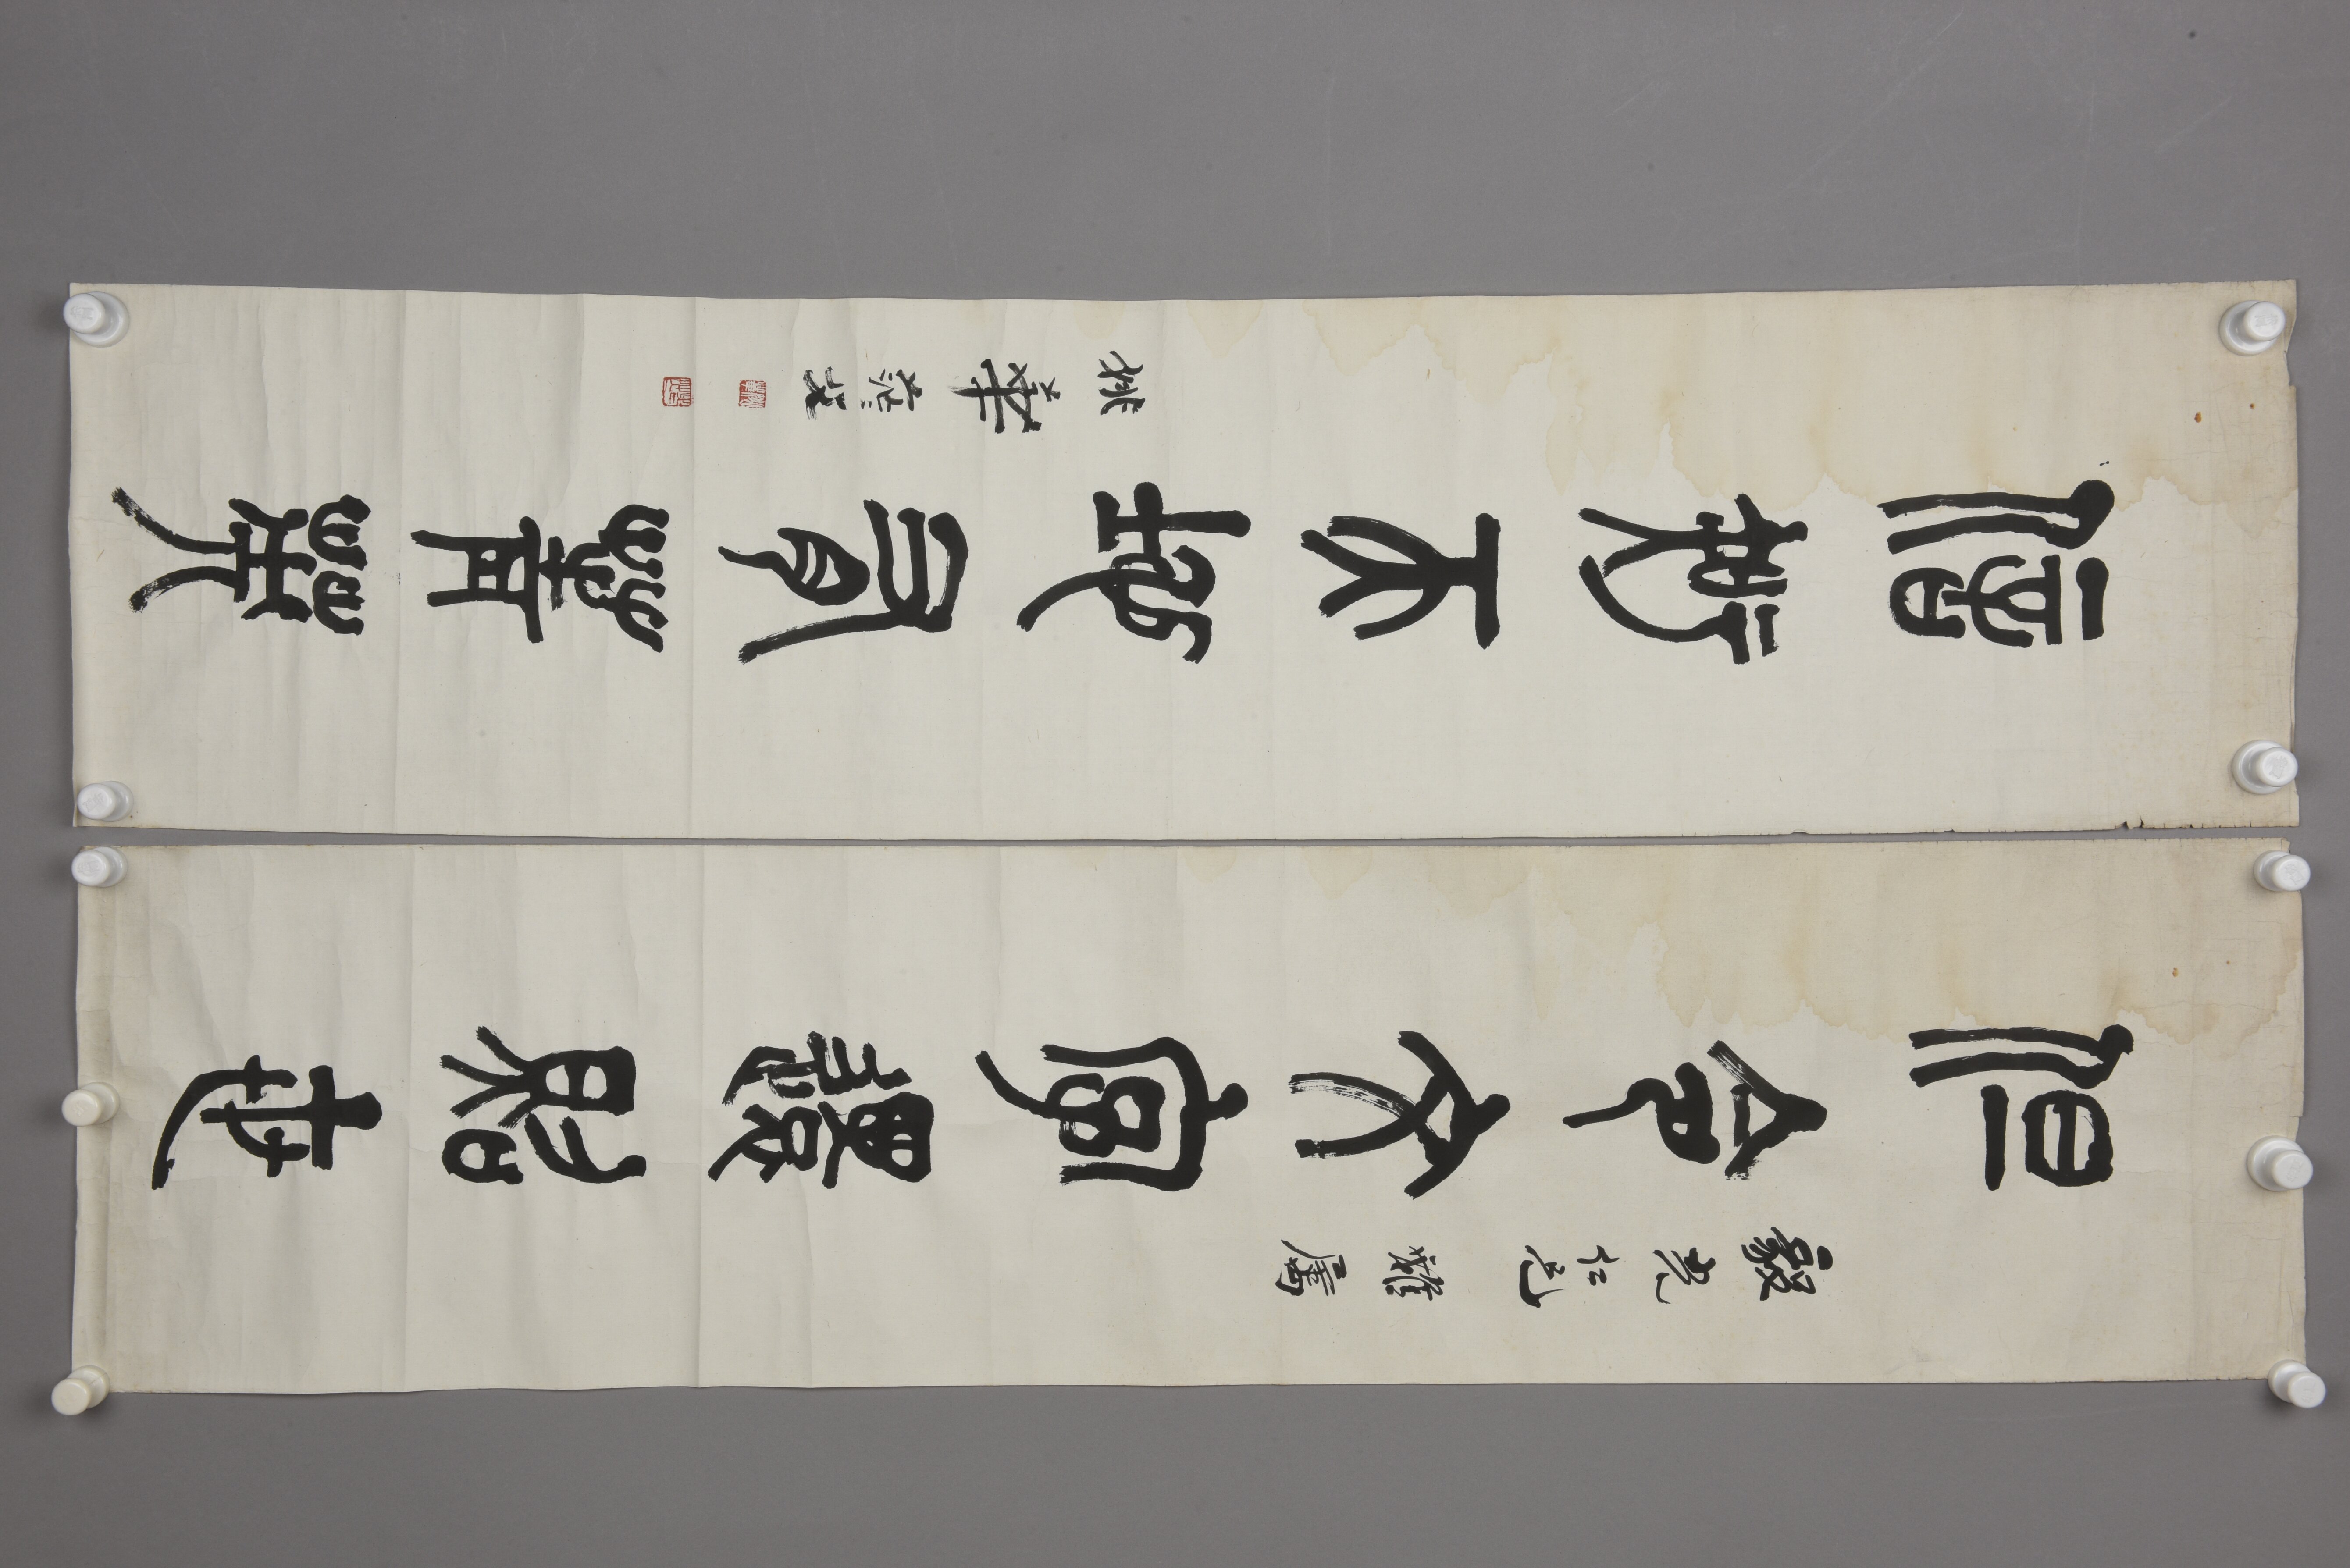 毅光仁兄 雅屬
但令文字還照世
信知天地有菁英
姚華茫父
姚華